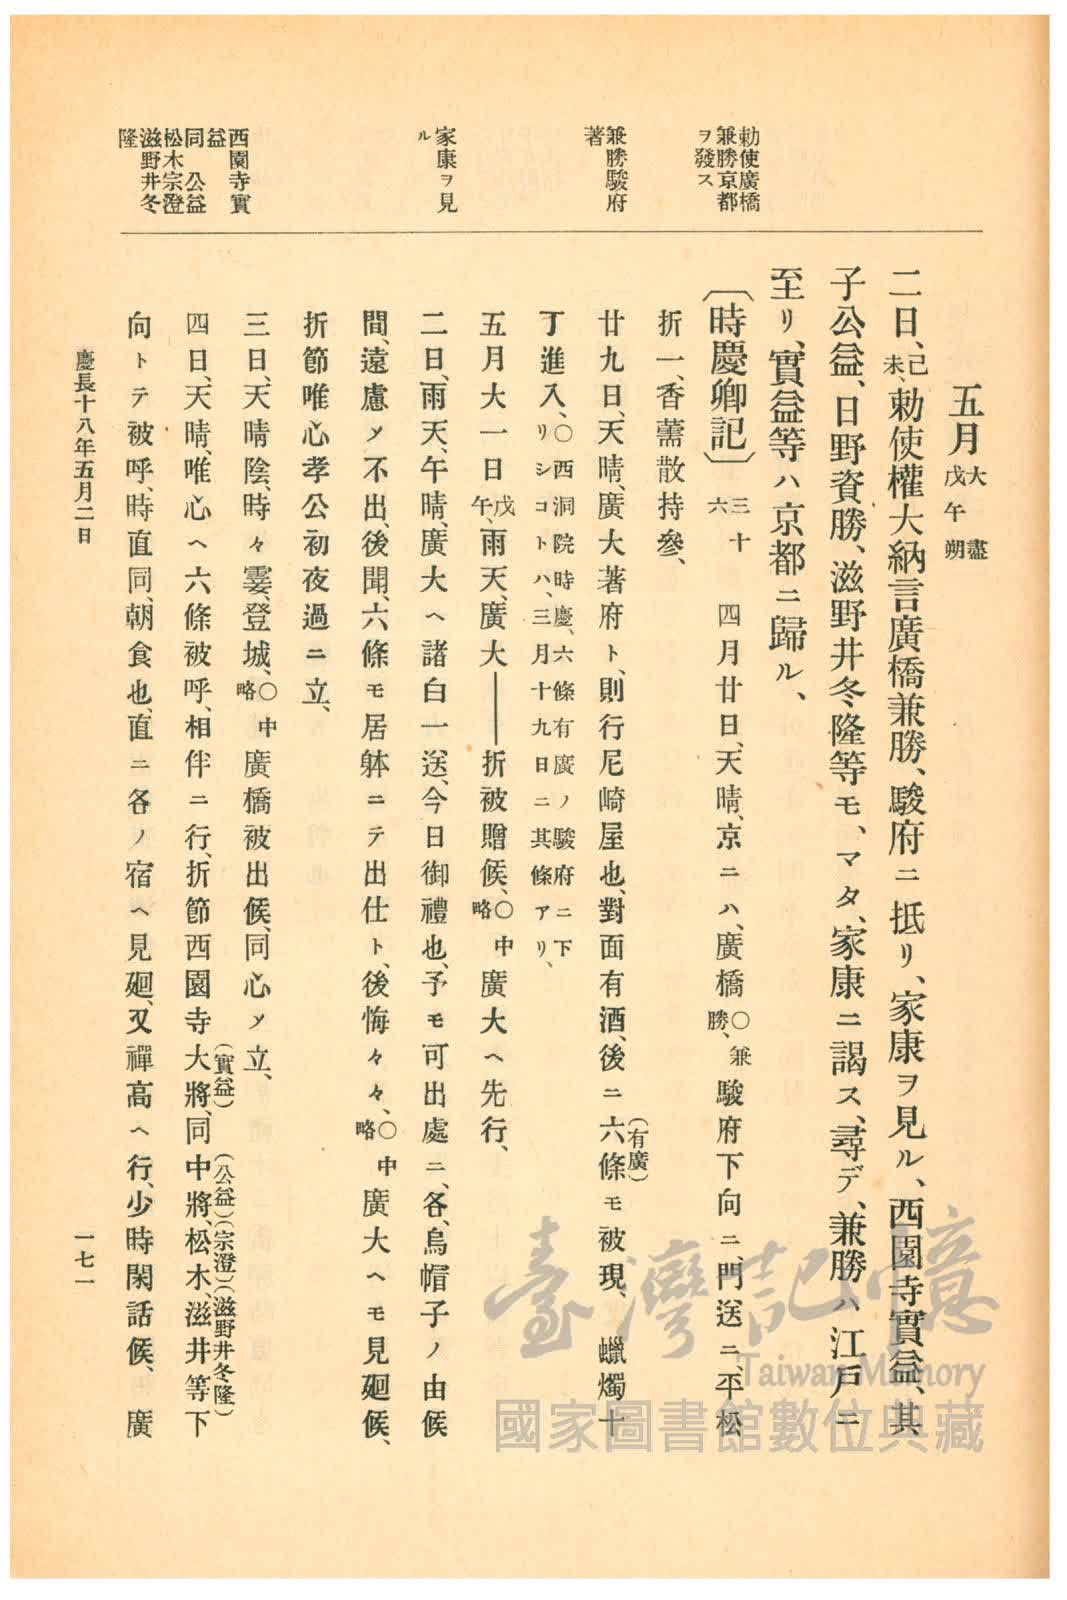 勅使廣橋
兼勝京都
ヲ發ス
兼勝駿府
著
家康ヲ見
ル
西園寺實
益
同公益
松木宗澄
滋野井冬
隆
五月大盡戊午朔
二日、己未、勅使權大納言廣橋兼勝、駿府ニ抵リ、家康ヲ見ル、西園寺實益、其
子公益、日野資勝、滋野井冬隆等モ、マタ、家康ニ謁ス、尋デ、兼勝ハ江戸ニ
至リ、實益等ハ京都ニ歸ル、
〔時慶卿記〕三十六 四月廿日、天晴、京ニハ、廣橋〇兼勝、駿府下向ニ、門送ニ、平松
折一、香薷散持參、
廿九日、天晴、廣大著府ト、則行尼崎屋也、對面有酒、後ニ六條(有廣)モ被現、蠟燭十
丁進入、〇西洞院時慶、六條有廣ノ駿府ニ下リシコトハ、三月十九日ニ其條アリ、
五月大一日戊午、雨天、廣大——折被贈候、〇中略廣大ヘ先行、
二日、雨天、午晴、廣大ヘ諸白一送、今日御禮也、予モ可出處ニ、各、烏帽子ノ由候
間、遠慮メ不出、後聞、六條モ居躰ニテ出仕ト、後悔々々、〇中略廣大ヘモ見廻候、
折節唯心孝公初夜過ニ立、
三日、天晴陰、時々霎、登城、〇中略廣橋被出候、同心メ立、
四日、天晴、唯心ヘ六條被呼、相伴ニ行、折節西園寺大將(實益)、同中將(公益)、松木(宗澄)、滋井(滋野井冬隆)等下
向トテ被呼、時直同、朝食也、直ニ各ノ宿ヘ見廻、又禪高ヘ行、少時閑話候、廣
慶長十八年五月二日
一七一
臺灣記憶
Taiwan Memory
國家圖書館數位典藏